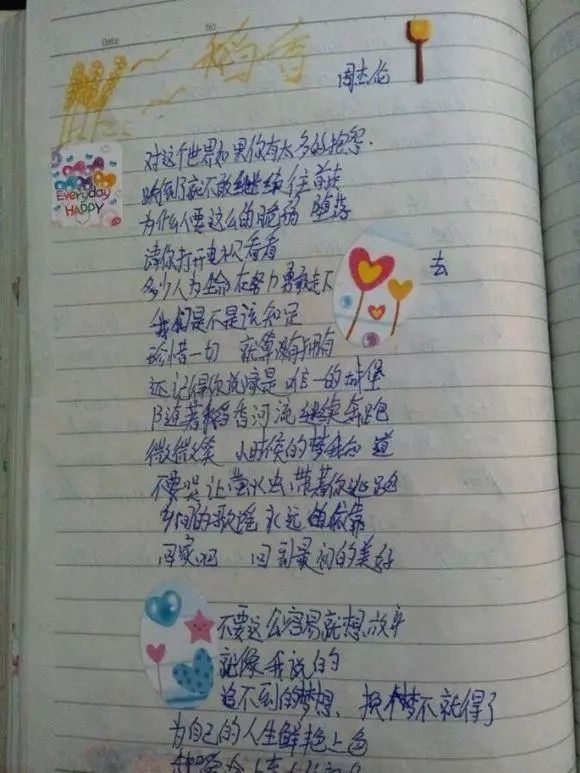 Date
No
稻香
周杰伦
Everyday
HAPPY
对这个世界如果你有太多的抱怨.
跌倒了就不敢继续往前走
为什么人要这么的脆弱 堕落
请你打开电视看看
多少人为生命在努力勇敢走下去
我们是不是该知足
珍惜一切 就算没有拥有
还记得你说家是唯一的城堡
随著稻香河流继续奔跑
微微笑 小时候的梦我知道
不要哭让萤火虫带著你逃跑
乡间的歌谣永远的依靠
回家吧 回到最初的美好
不要这么容易就想放弃
就像我说的
追不到的梦想、换个梦不就得了
为自己的人生鲜艳上色